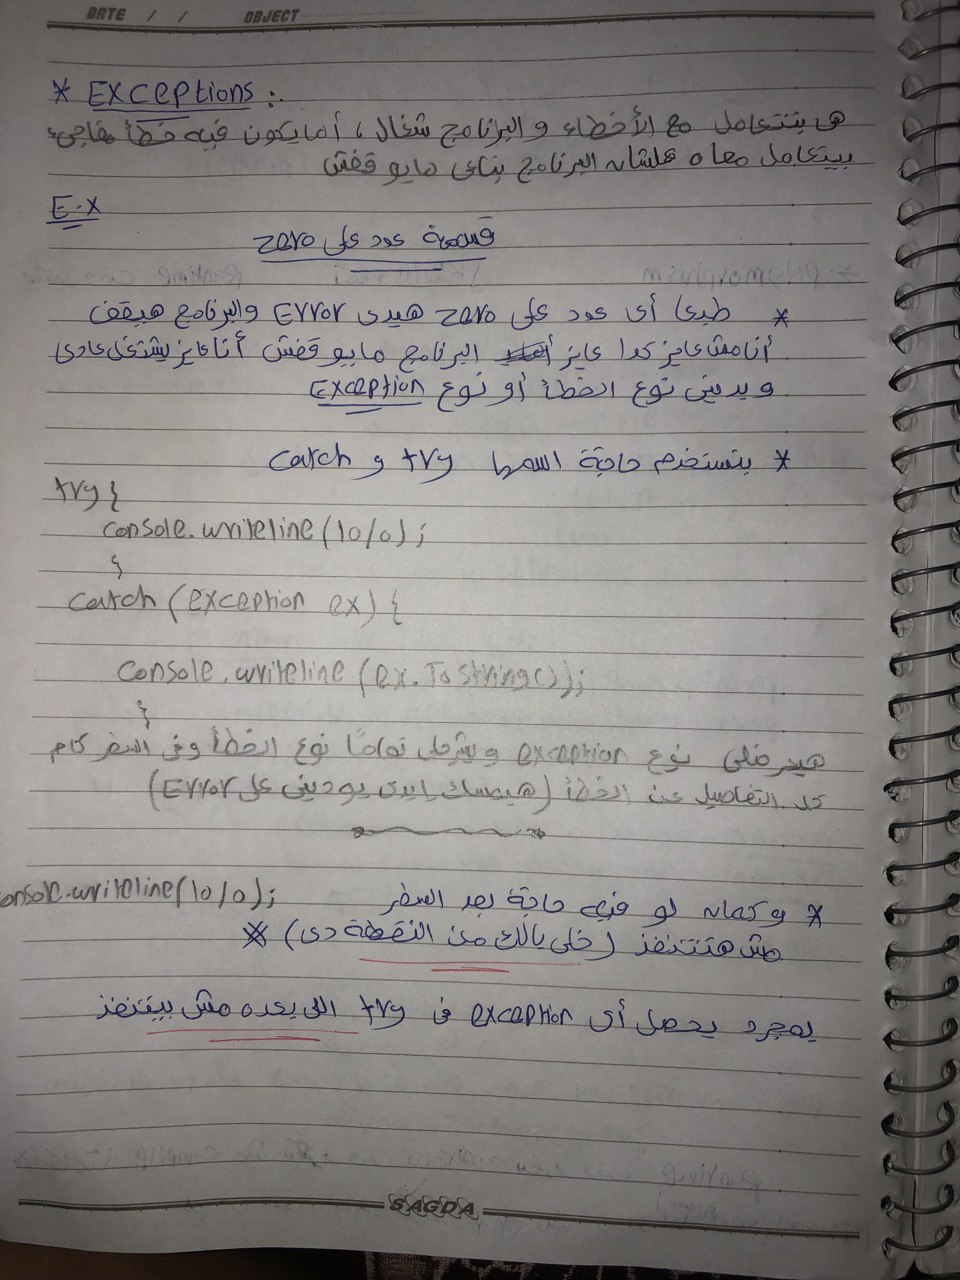 DATE / / OBJECT
* Exceptions :.
هى بتتعامل مع الأخطاء و البرنامج شغال ، أما يكون فيه خطأ مفاجىء
بيتعامل معاه علشان البرنامج بتاعى مايوقفش
E.X
قسمة عدد على zero
* طبعا أى عدد على zero هيدى Error والبرنامج هيقف
أنا مش عايز كدا عايز البرنامج مايوقفش أنا عايز يشتغل عادى
و يدينى نوع الخطأ أو نوع Exception
* بتستخدم حاجة اسمها try و catch
try {
console.writeline(10/0);
}
catch (exception ex) {
console.writeline (ex.ToString());
}
هيعرفلى نوع exception ويشرحلى تماما نوع الخطأ وفى السطر كام
كل التفاصيل عن الخطأ (هيمسك إيدى يودينى على Error)
* وكمان لو فيه حاجة بعد السطر console.writeline(10/0);
مش هتتنفذ (خلى بالك من النقطة دى) *
بمجرد يحصل أى exception فى try اللى بعده مش بيتنفذ
SAGDA